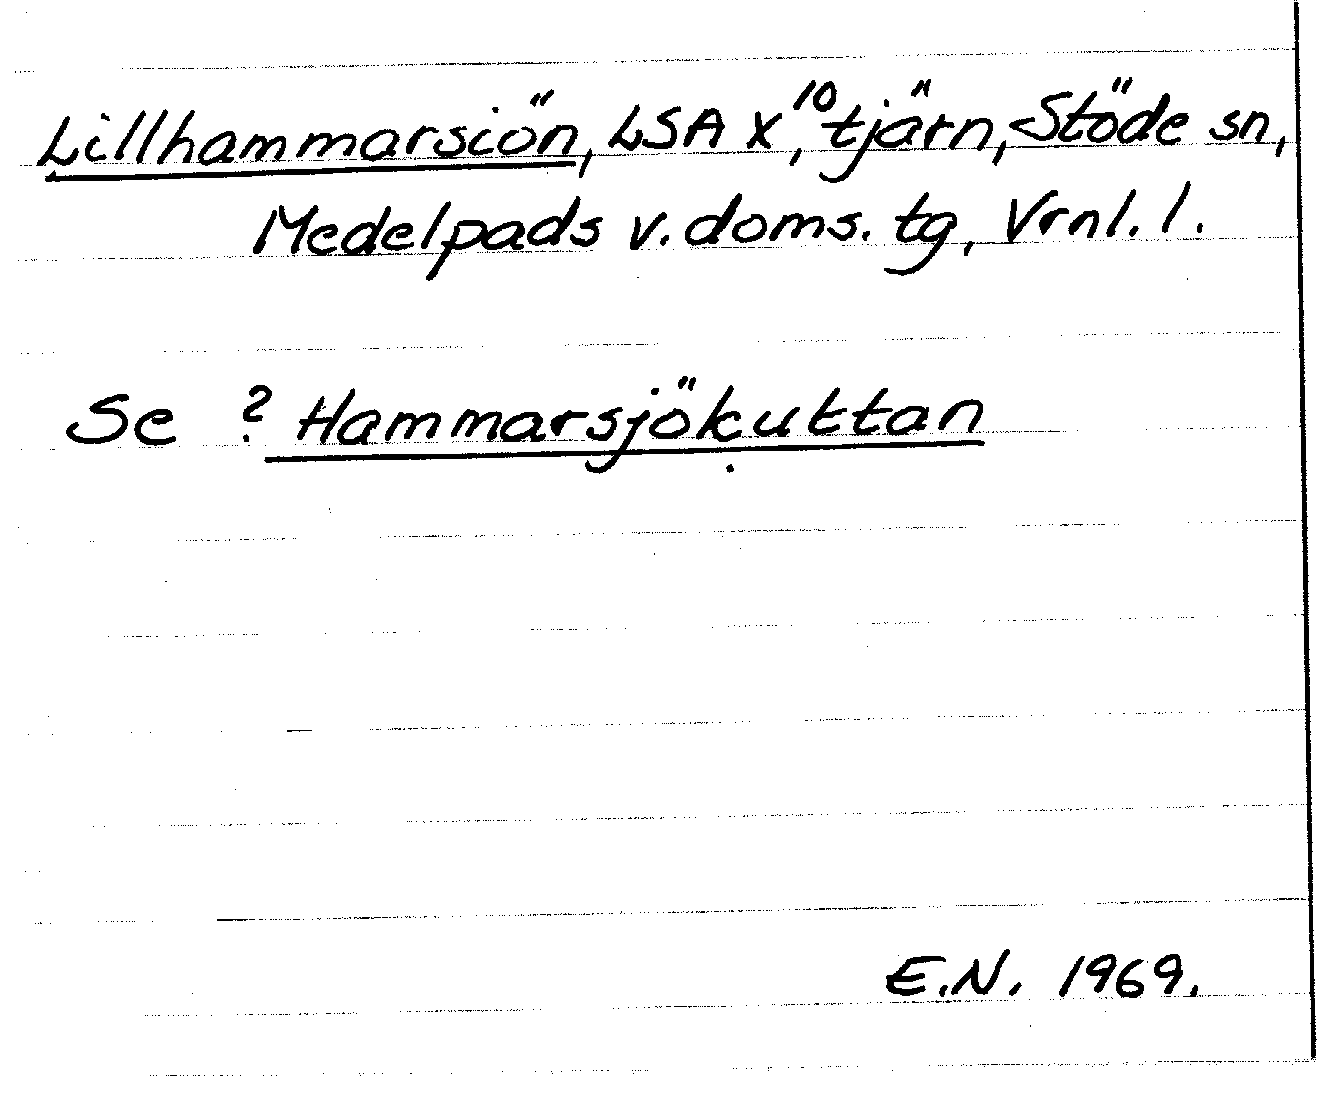 Lillhammarsiön, LSA X¹⁰, tjärn, Stöde sn,
Medelpads v. doms. tg, Vrnl. l.
Se ? Hammarsjökuttan
E.N. 1969.